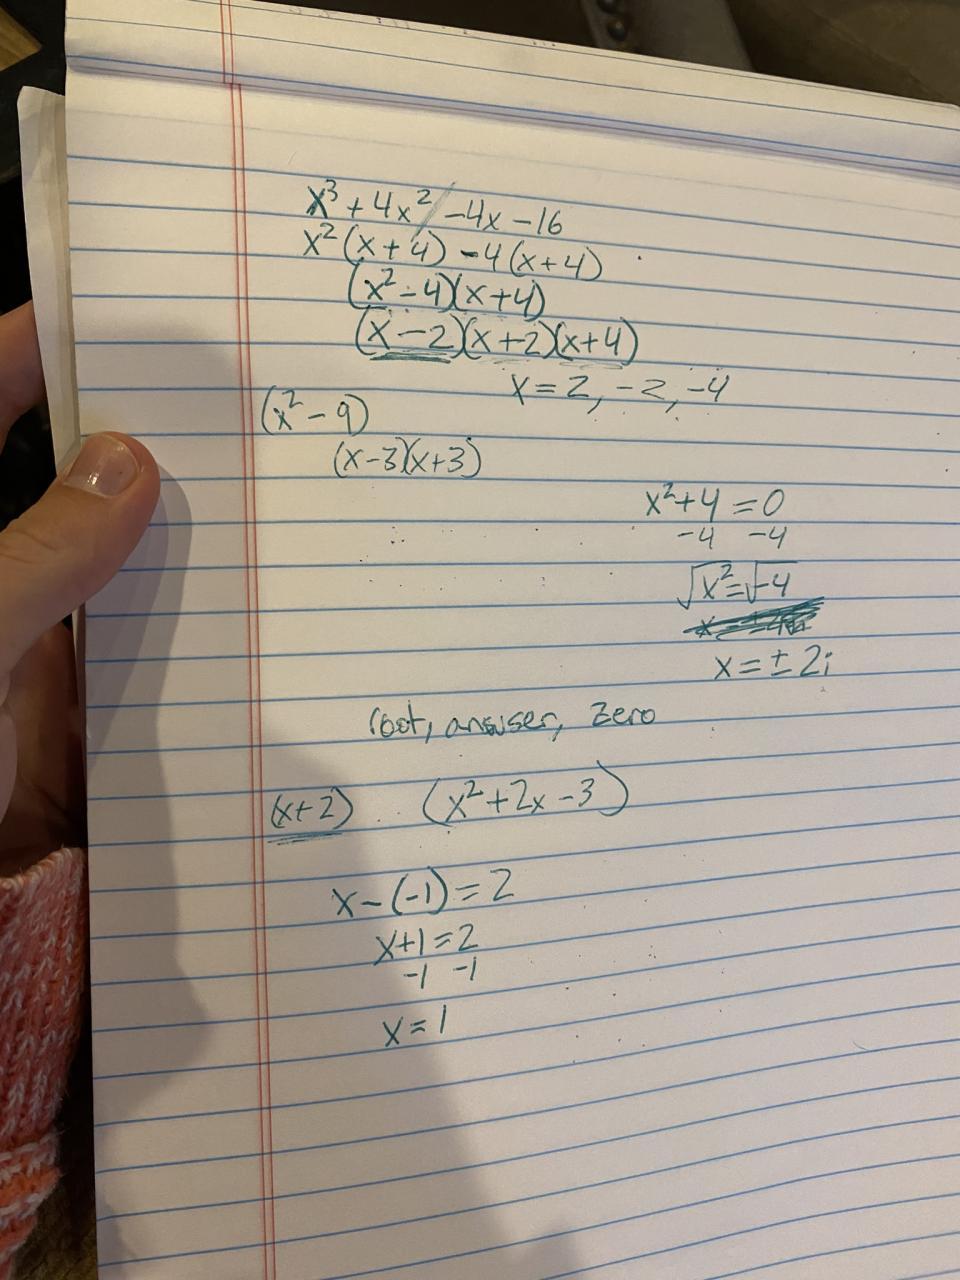 x³ + 4x² - 4x - 16
x² (x + 4) - 4 (x + 4)
(x² - 4)(x + 4)
(x - 2)(x + 2)(x + 4)
x = 2, -2, -4
(x² - 9)
(x - 3)(x + 3)
x² + 4 = 0
-4 -4
√x² = √-4
x = ± 2i
root, answer, zero
(x + 2) (x² + 2x - 3)
x - (-1) = 2
x + 1 = 2
-1 -1
x = 1